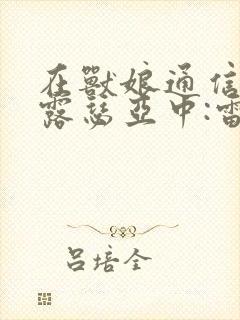 在獸娘通信
露瑟亞中:雷
呂培全